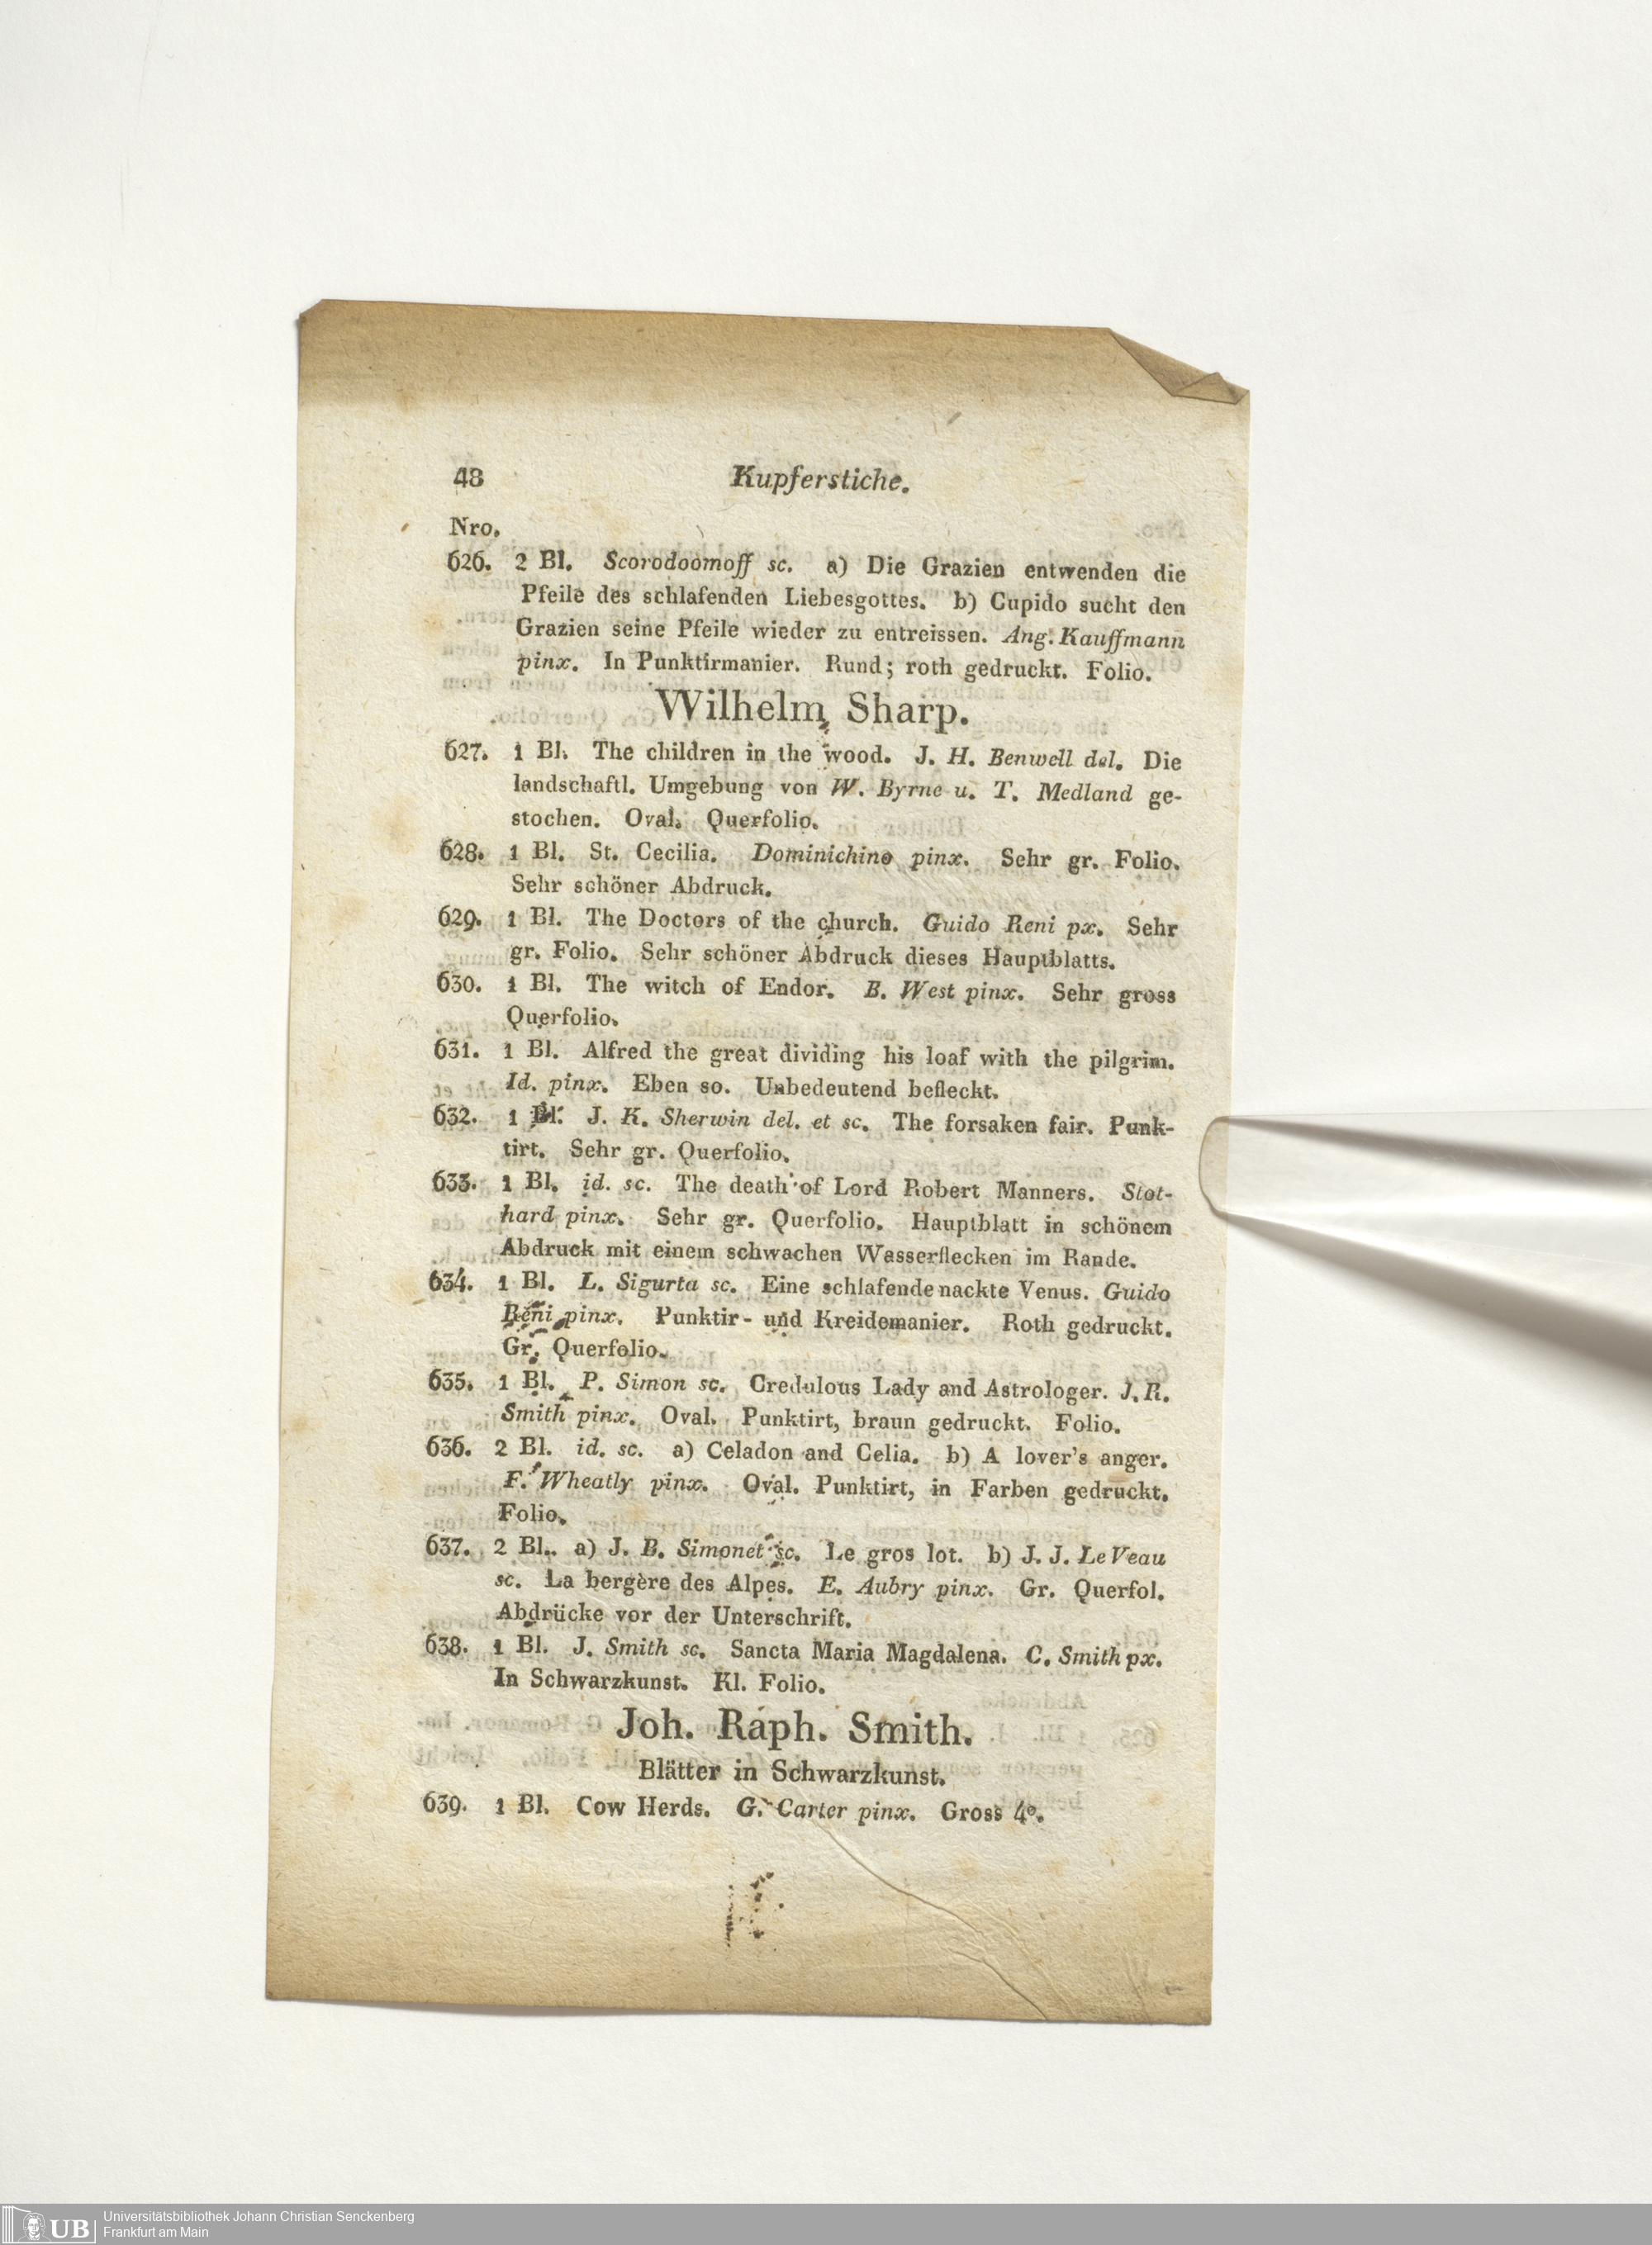 48 Kupferstiche.
Nro.
626. 2 Bl. Scorodoomoff sc. a) Die Grazien entwenden die
Pfeile des schlafenden Liebesgottes. b) Cupido sucht den
Grazien seine Pfeile wieder zu entreissen. Ang. Kauffmann
pinx. In Punktirmanier. Rund; roth gedruckt. Folio.
Wilhelm Sharp.
627. 1 Bl. The children in the wood. J. H. Benwell del. Die
landschaftl. Umgebung von W. Byrne u. T. Medland ge-
stochen. Oval. Querfolio.
628. 1 Bl. St. Cecilia. Dominichino pinx. Sehr gr. Folio.
Sehr schöner Abdruck.
629. 1 Bl. The Doctors of the church. Guido Reni px. Sehr
gr. Folio. Sehr schöner Abdruck dieses Hauptblatts.
630. 1 Bl. The witch of Endor. B. West pinx. Sehr gross
Querfolio.
631. 1 Bl. Alfred the great dividing his loaf with the pilgrim.
Id. pinx. Eben so. Unbedeutend befleckt.
632. 1 Bl. J. K. Sherwin del. et sc. The forsaken fair. Punk-
tirt. Sehr gr. Querfolio.
633. 1 Bl. id. sc. The death of Lord Robert Manners. Stot-
hard pinx. Sehr gr. Querfolio. Hauptblatt in schönem
Abdruck mit einem schwachen Wasserflecken im Rande.
634. 1 Bl. L. Sigurta sc. Eine schlafende nackte Venus. Guido
Reni pinx. Punktir- und Kreidemanier. Roth gedruckt.
Gr. Querfolio.
635. 1 Bl. P. Simon sc. Credulous Lady and Astrologer. J. R.
Smith pinx. Oval. Punktirt, braun gedruckt. Folio.
636. 2 Bl. id. sc. a) Celadon and Celia. b) A lover's anger.
F. Wheatly pinx. Oval. Punktirt, in Farben gedruckt.
Folio.
637. 2 Bl. a) J. B. Simonet sc. Le gros lot. b) J. J. Le Veau
sc. La bergère des Alpes. E. Aubry pinx. Gr. Querfol.
Abdrücke vor der Unterschrift.
638. 1 Bl. J. Smith sc. Sancta Maria Magdalena. C. Smith px.
In Schwarzkunst. Kl. Folio.
Joh. Raph. Smith.
Blätter in Schwarzkunst.
639. 1 Bl. Cow Herds. G. Carter pinx. Gross 4°.
UB Universitätsbibliothek Johann Christian Senckenberg
Frankfurt am Main